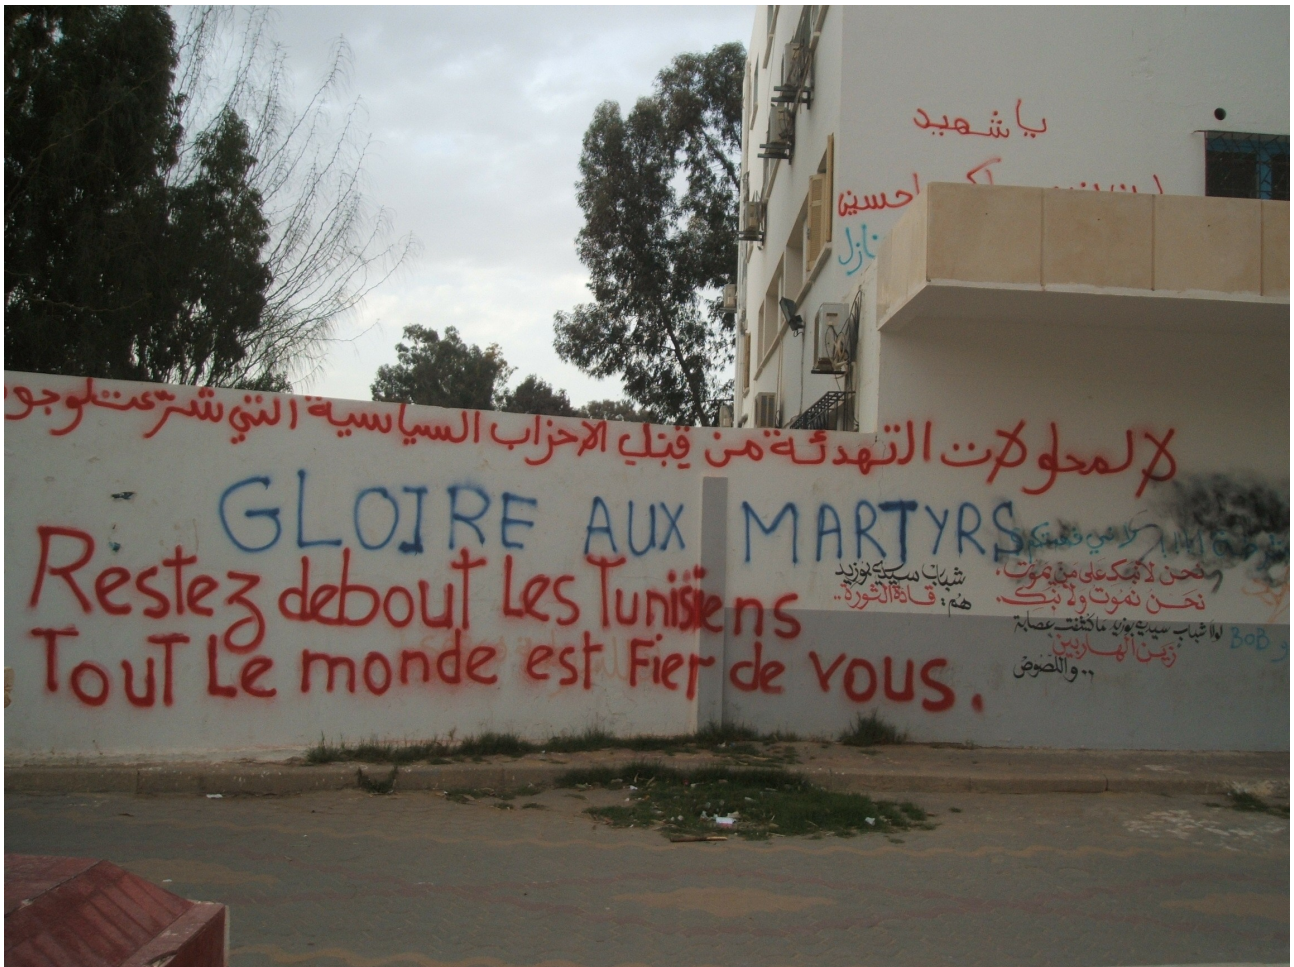 يا شهيد
احسين
نازل
لا لمحاولات التهدئة من قبل الاحزاب السياسية التي شرعت لوجو
GLOIRE AUX MARTYRS
Restez debout Les Tunisiens
Tout Le monde est Fier de vous.
شباب سيدي بوزيد
هُم: قادة الثورة..
نحن لا نبك على من يموت.
نحن نموت ولا نبك.
لولا شباب سيدي بوزيد ما كشفت عصابة
زين الهاربين
..واللصوص
BOB